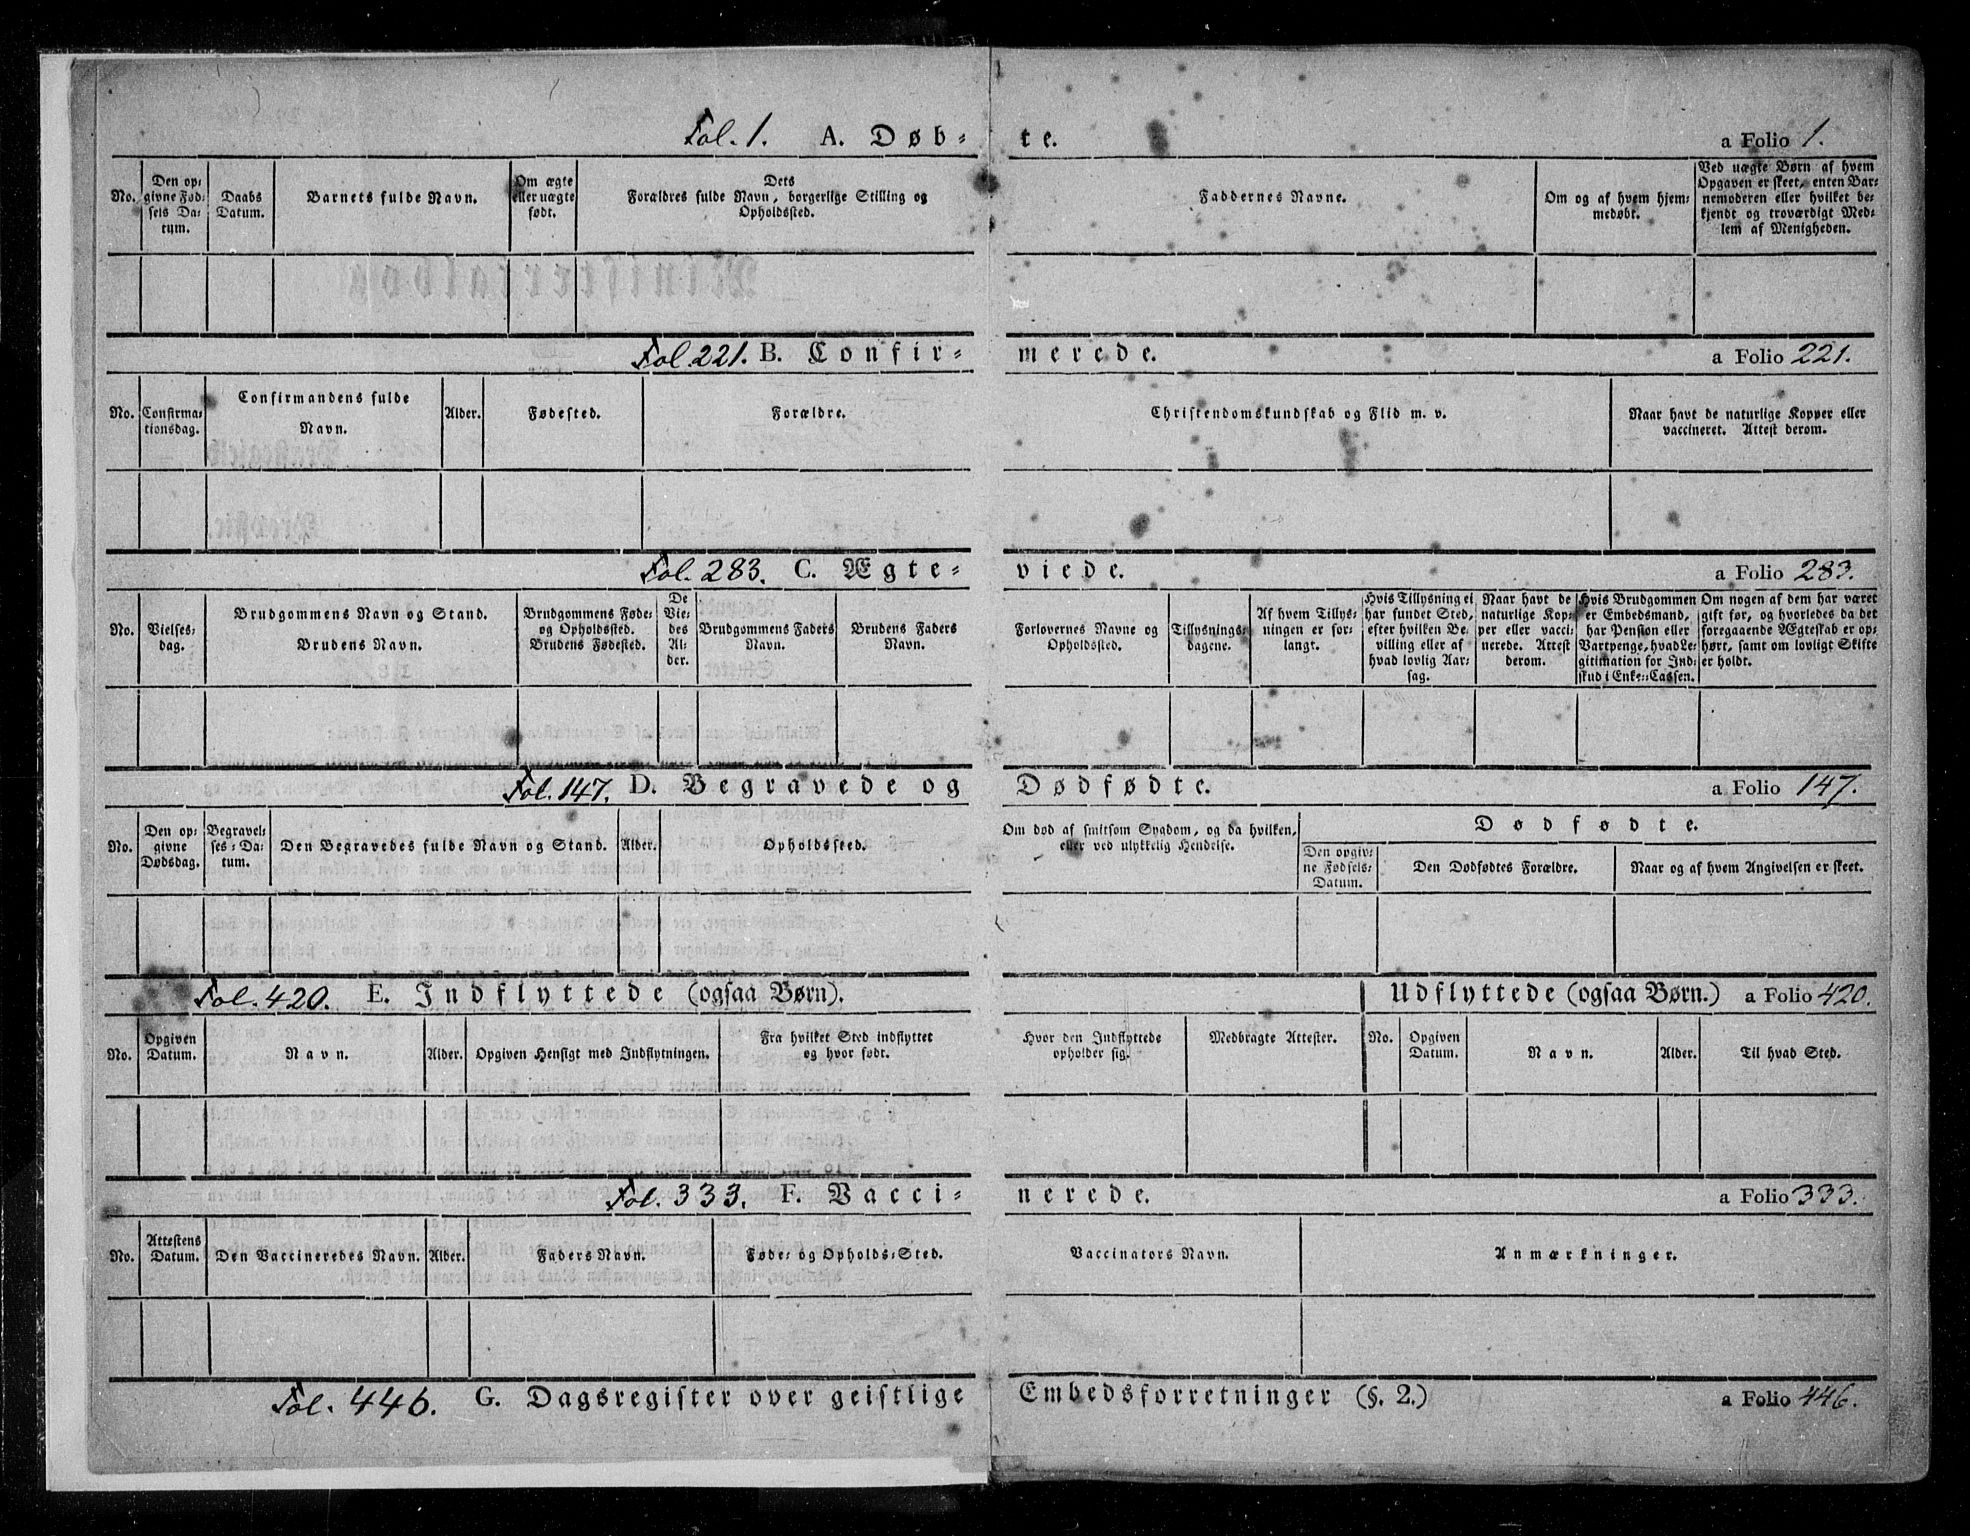 Fol. 1. A. Døb- te. a Folio 1.
No.
Den op-
givne Fød-
sels Da-
tum.
Daabs
Datum.
Barnets fulde Navn.
Om ægte
eller uægte
født.
Dets
Forældres fulde Navn, borgerlige Stilling og
Opholdssted.
Faddernes Navne.
Om og af hvem hjem-
medøbt.
Ved uægte Børn af hvem
Opgaven er skeet, enten Bar-
nemoderen eller hvilket be-
kjendt og troværdigt Med-
lem af Menigheden.
Fol. 221. B. Confir- merede. a Folio 221.
No.
Confirma-
tionsdag.
Confirmandens fulde
Navn.
Alder.
Fødested.
Forældre.
Christendomskundskab og Flid m. v.
Naar havt de naturlige Kopper eller
vaccineret. Attest derom.
Fol. 283. C. Ægte- viede. a Folio 283.
No.
Vielses-
dag.
Brudgommens Navn og Stand.
Brudens Navn.
Brudgommens Føde-
og Opholdssted.
Brudens Fødested.
De
Vie-
des
Al-
der.
Brudgommens Faders
Navn.
Brudens Faders
Navn.
Forlovernes Navne og
Opholdssted.
Tillysnings-
dagene.
Af hvem Tillys-
ningen er for-
langt.
Hvis Tillysning ei
har fundet Sted,
efter hvilken Be-
villing eller af
hvad lovlig Aar-
sag.
Naar havt de
naturlige Kop-
per eller vacci-
nerede. Attest
derom.
Hvis Brudgommen
er Embedsmand,
har Pension eller
Vartpenge, hvad Le-
gitimation for Ind-
skud i Enke-Cassen.
Om nogen af dem har været
gift før, og hvorledes da det
foregaaende Ægteskab er op-
hørt, samt om lovligt Skifte
er holdt.
Fol. 147. D. Begravede og Dødfødte. a Folio 147.
No.
Den op-
givne
Dødsdag.
Begravel-
ses-Da-
tum.
Den Begravedes fulde Navn og Stand.
Alder.
Opholdssted.
Om død af smitsom Sygdom, og da hvilken,
eller ved ulykkelig Hendelse.
Dødfødte.
Den opgiv-
ne Fødsels-
Datum.
Den Dødfødtes Forældre.
Naar og af hvem Angivelsen er skeet.
Fol. 420. E. Indflyttede (ogsaa Børn). Udflyttede (ogsaa Børn.) a Folio 420.
No.
Opgiven
Datum.
Navn.
Alder.
Opgiven Hensigt med Indflytningen.
Fra hvilket Sted indflyttet
og hvor født.
Hvor den Indflyttede
opholder sig.
Medbragte Attester.
No.
Opgiven
Datum.
Navn.
Alder.
Til hvad Sted.
Fol. 333. F. Vacci- nerede. a Folio 333.
No.
Attestens
Datum.
Den Vaccineredes Navn.
Alder.
Faders Navn.
Føde- og Opholds-Sted.
Vaccinators Navn.
Anmærkninger.
Fol. 446. G. Dagsregister over geistlige Embedsforretninger (§. 2.) a Folio 446.